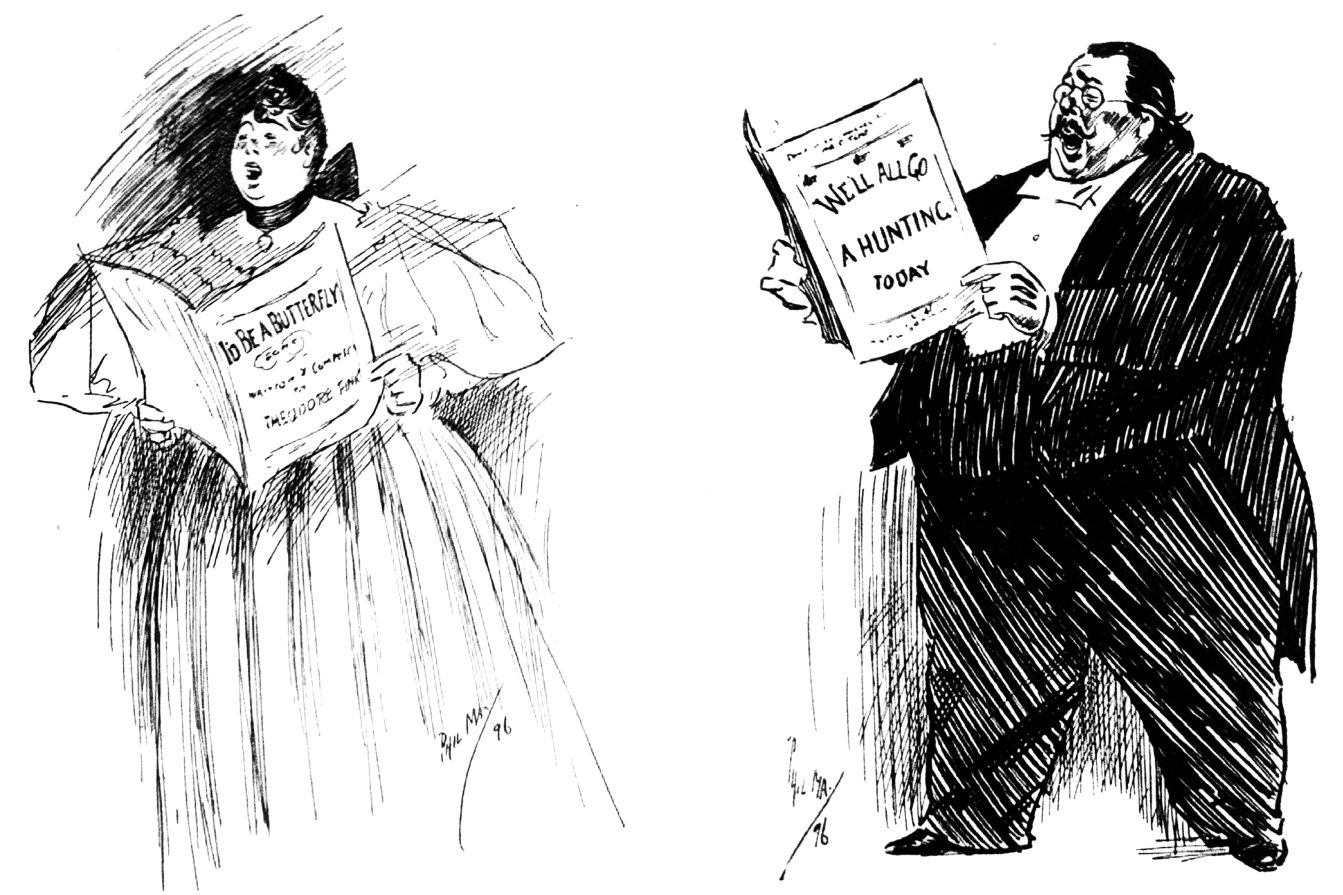 I'D BE A BUTTERFLY
SONG
WRITTEN & COMPOSED
BY
THEODORE FUNK
PHIL MA-
96
WE'LL ALL GO
A HUNTING
TODAY
PHIL MA-
96